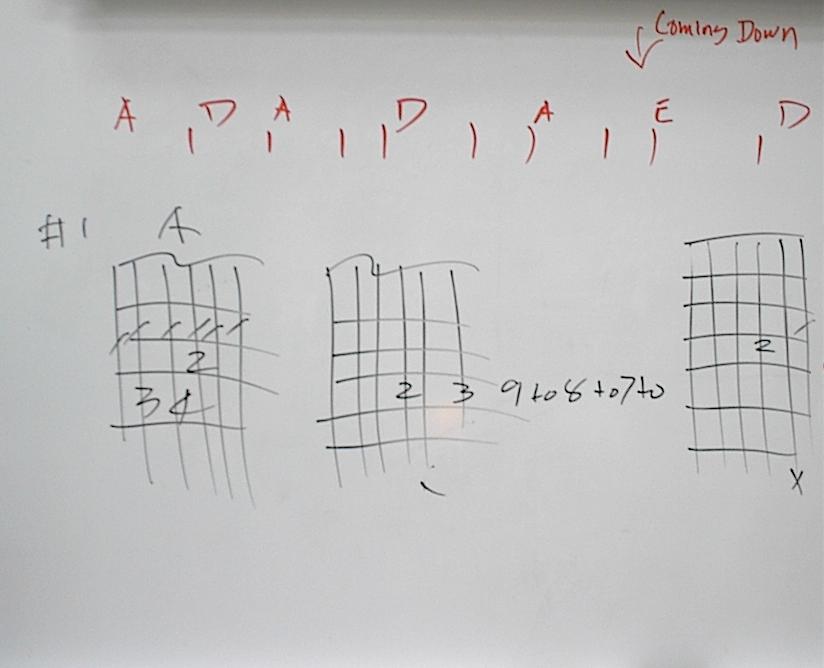 Coming Down
A D A D A E D
#1 A
2
3 4
2 3 9 to 8 to 7 to
2
X